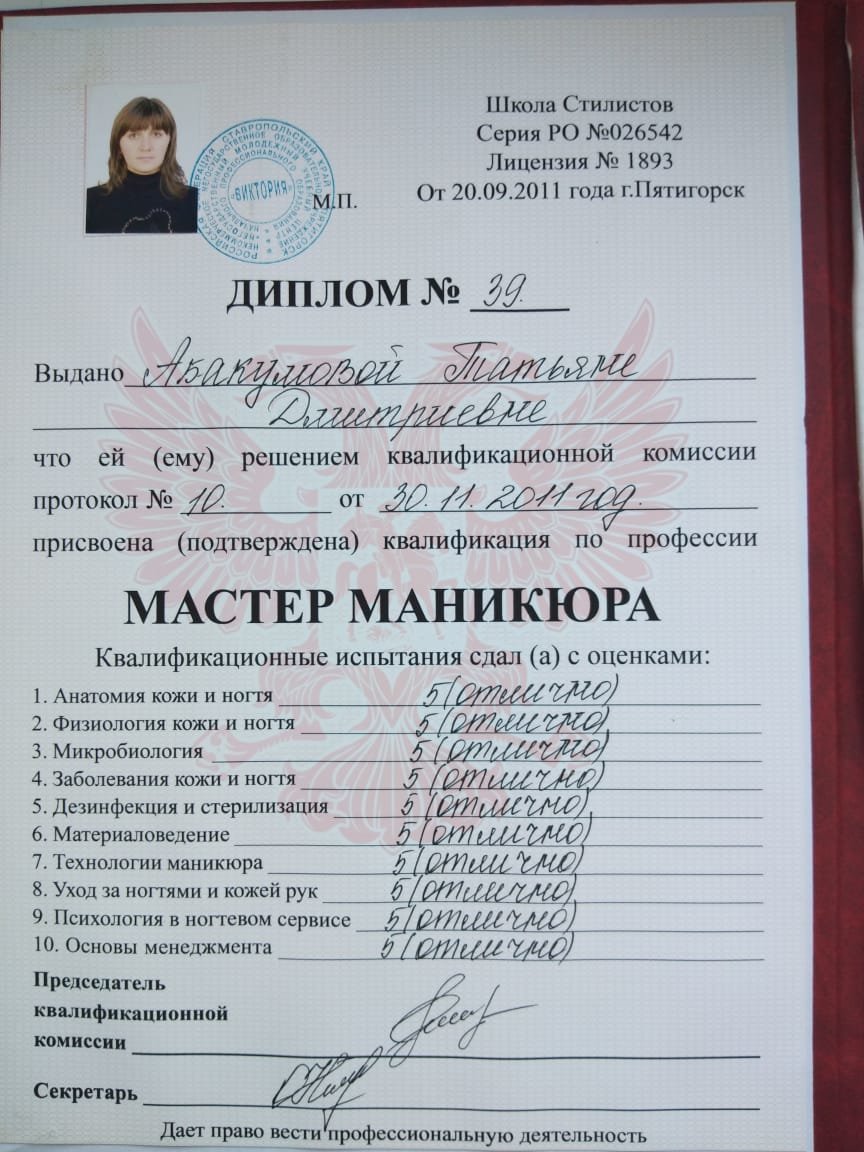 Школа Стилистов
Серия РО №026542
Лицензия № 1893
От 20.09.2011 года г.Пятигорск
"ВИКТОРИЯ"
М.П.
ДИПЛОМ № 39.
Выдано Абакумовой Татьяне
Дмитриевне
что ей (ему) решением квалификационной комиссии
протокол № 10. от 30.11.2011 год.
присвоена (подтверждена) квалификация по профессии
МАСТЕР МАНИКЮРА
Квалификационные испытания сдал (а) с оценками:
1. Анатомия кожи и ногтя 5 (отлично)
2. Физиология кожи и ногтя 5 (отлично)
3. Микробиология 5 (отлично)
4. Заболевания кожи и ногтя 5 (отлично)
5. Дезинфекция и стерилизация 5 (отлично)
6. Материаловедение 5 (отлично)
7. Технологии маникюра 5 (отлично)
8. Уход за ногтями и кожей рук 5 (отлично)
9. Психология в ногтевом сервисе 5 (отлично)
10. Основы менеджмента 5 (отлично)
Председатель
квалификационной
комиссии
Секретарь
Дает право вести профессиональную деятельность